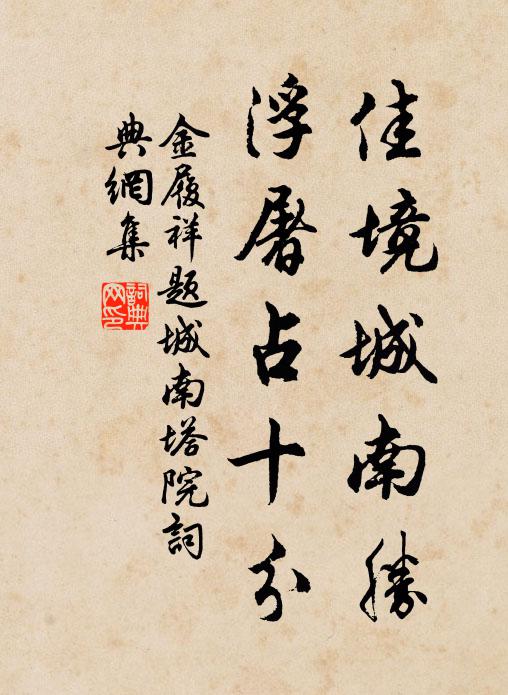 佳境城南勝
浮屠占十分
金履祥題城南塔院詞
典網集
詞典
网印